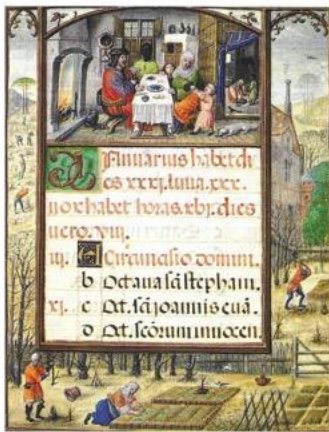 Januarius habet di
es xxxi. luna. xxx.
nox habet horas. xvi. dies
vero. viii.
iii. A Circuncisio domini.
b Octaua sci stephani.
xi. c Oct. sci joannis eua.
d Oct. scorum innocen.